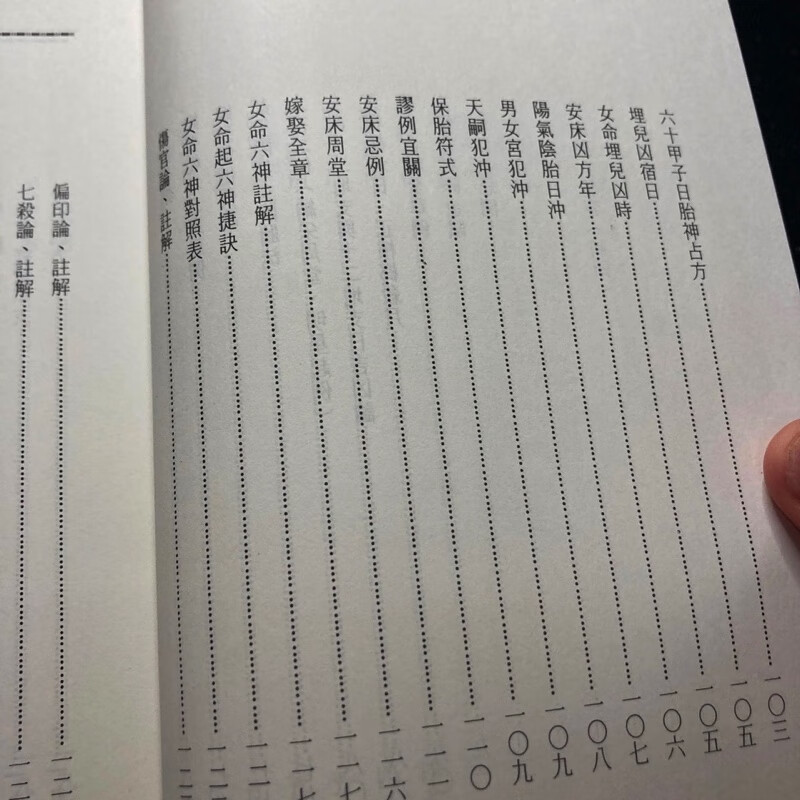 六十甲子日胎神占方一〇三
埋兒凶宿日一〇五
女命埋兒凶時一〇五
安床凶方年一〇六
陽氣陰胎日沖一〇七
男女宮犯沖一〇八
天嗣犯沖一〇九
保胎符式一〇九
謬例宜關一一〇
安床忌例一一一
安床周堂一一六
嫁娶全章一一七
女命六神註解一一七
女命起六神捷訣一二
女命六神對照表一二
傷官論、註解一二
偏印論、註解一二
七殺論、註解一二